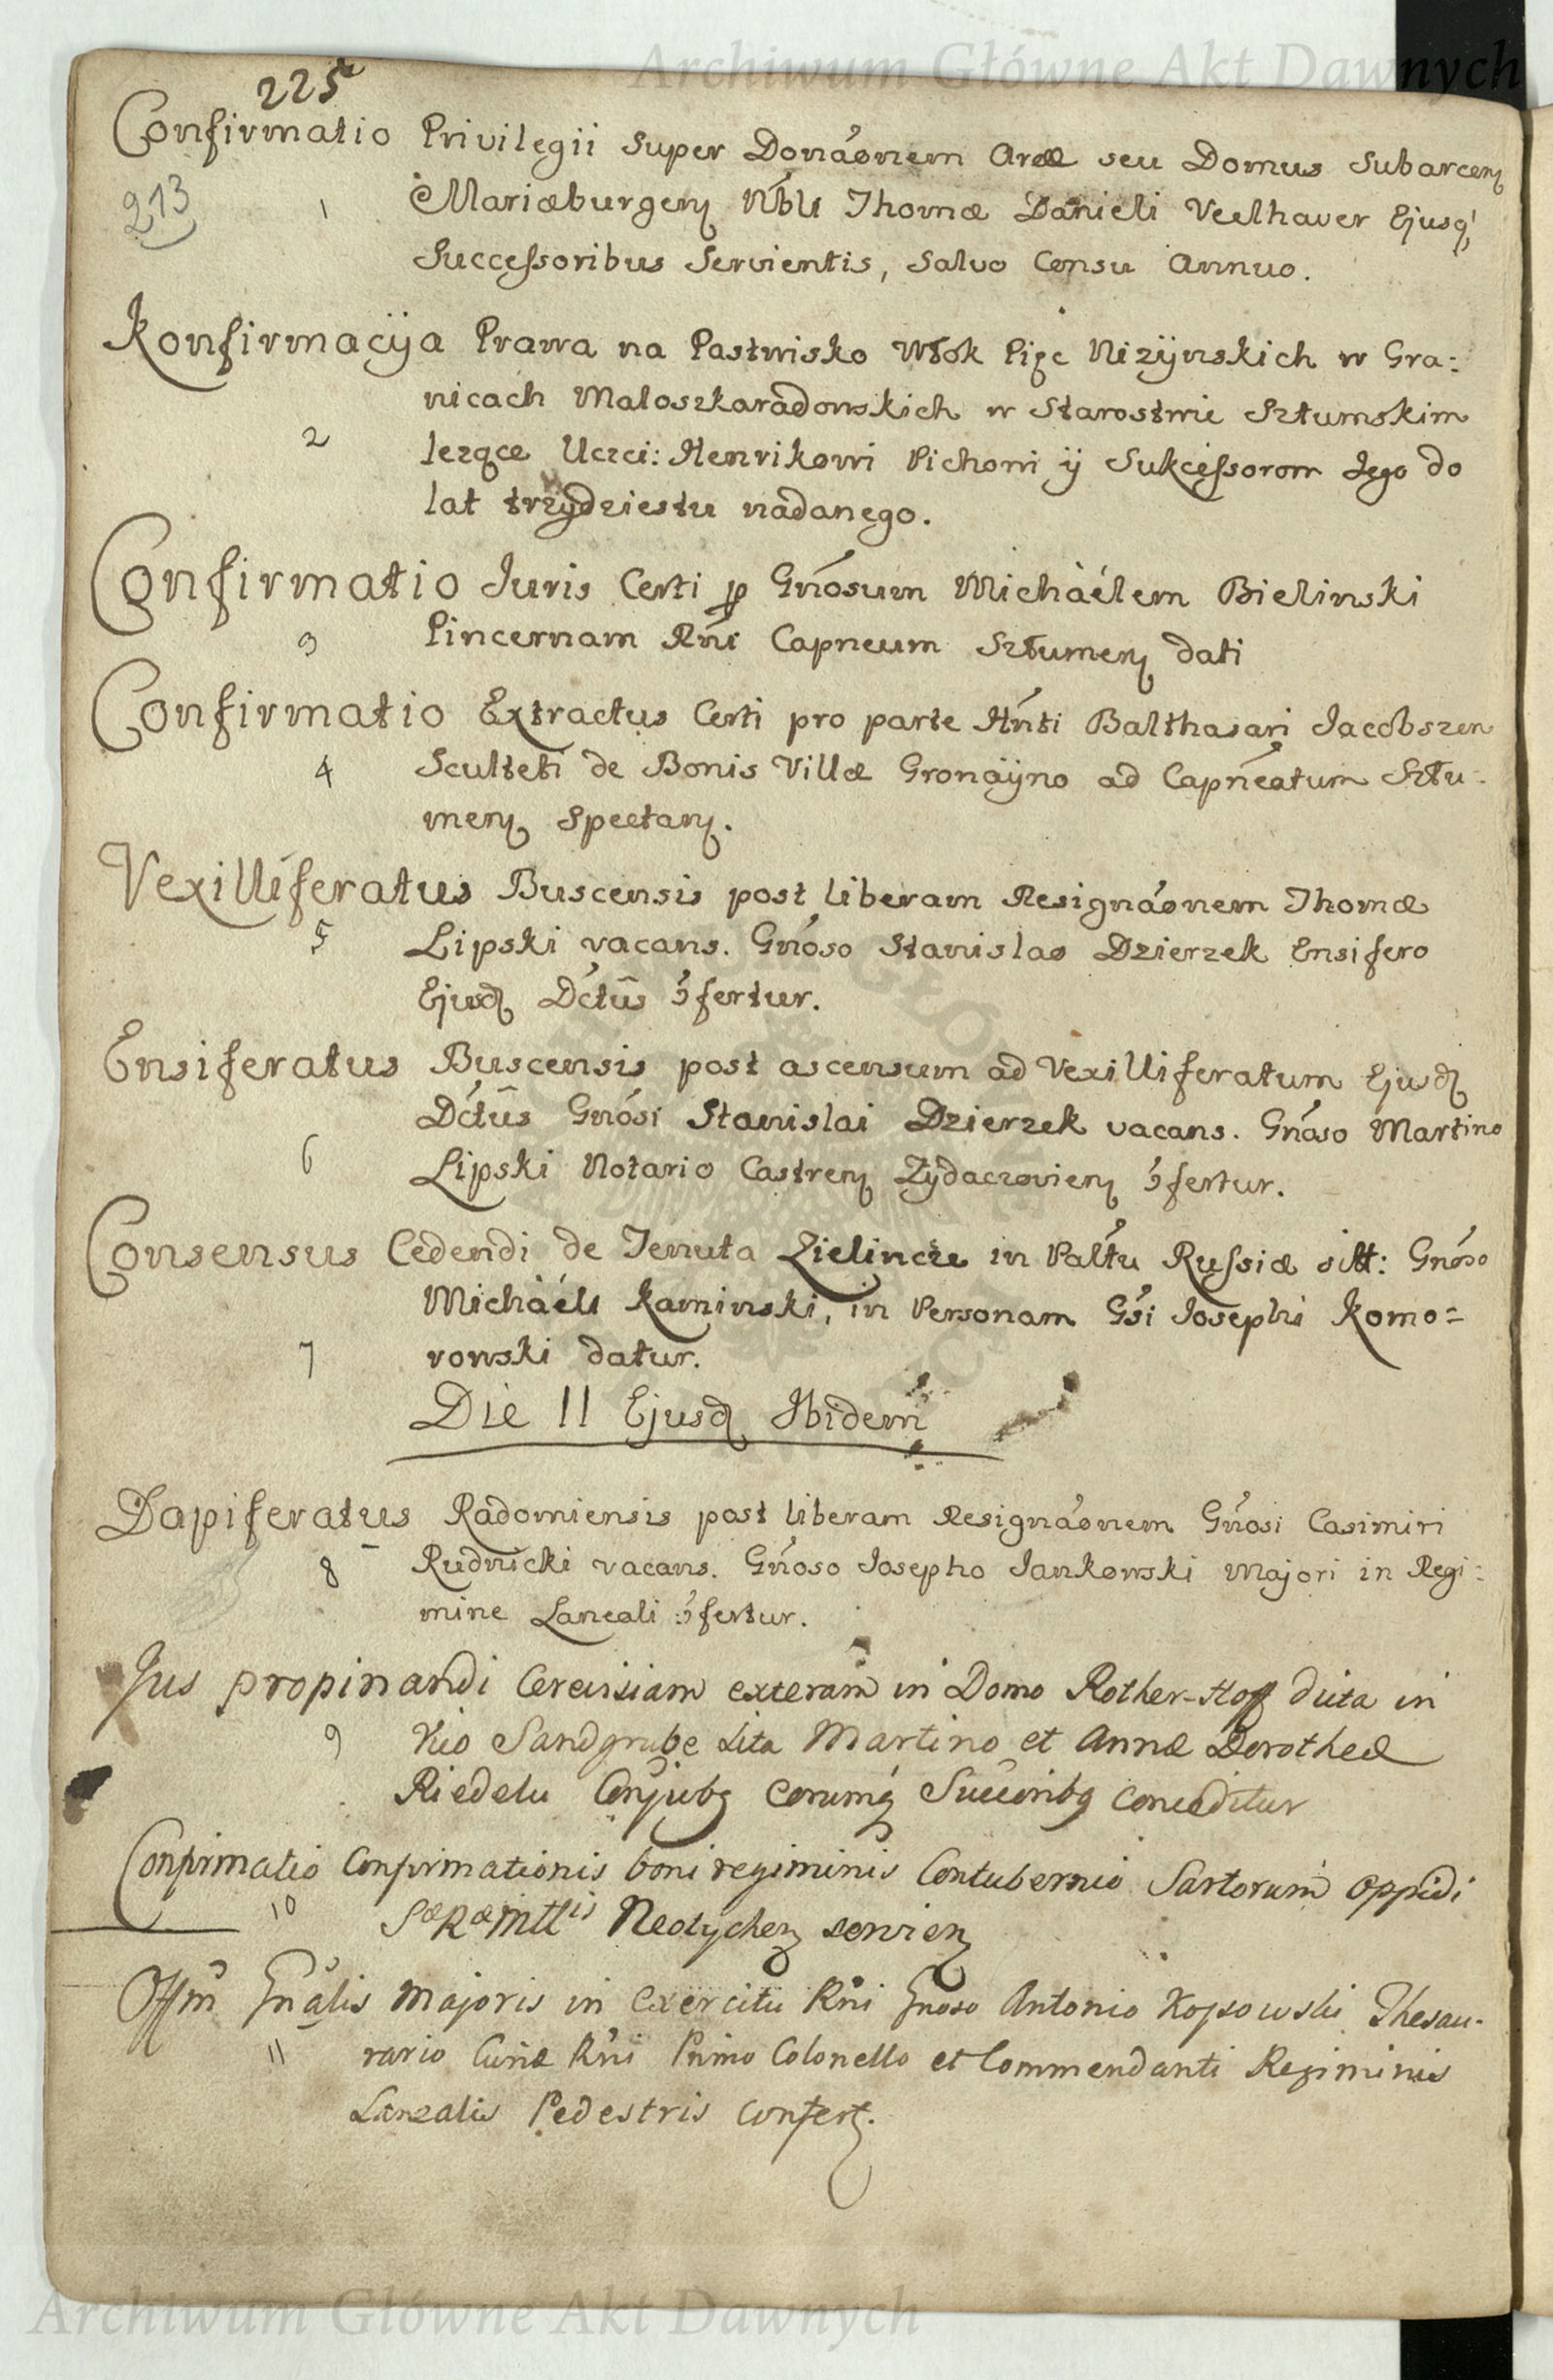 Archiwum Główne Akt Dawnych
225
Confirmatio Privilegii Super Donaónem Areæ seu Domus Subarcen
213 1 Mariæburgen Nbli Thomæ Danieli Veelhaver Ejusq
Successoribus Servientis, Salvo Censu Annuo.
Konfirmacÿa Prawa na Pastwisko Włok Pięc Nizÿnskich w Gra:
nicach Maloszkaradowskich w Starostwie Sztumskim
2 lezące Uczci: Henrikowi Pichowi ÿ Sukcessorom Jego do
lat trzydziestu nadanego.
Confirmatio Juris Certi p Gnosum Michàélem Bielinski
3 Pincernam Rni Capneum Sztumen dati
Confirmatio Extractus Certi pro parte Hnti Balthasari Jacobszen
4 Sculteti de Bonis Villæ Gronaÿno ad Capneatum Sztu:
men Spectan.
Vexilliferatus Buscensis post liberam Resignaónem Thomæ
5 Lipski vacans. Gnoso Stanislao Dzierzek Ensifero
Ejusd Dctus ɔfertur.
Ensiferatus Buscensis post ascensum ad Vexilliferatum Ejusd
Dctus Gnosi Stanislai Dzierzek vacans. Gnoso Martino
6 Lipski Notario Castren Zÿdaczovien ɔfertur.
Consensus Cedendi de Tenuta Zielincze in Paltu Russiæ sitt: Gnoso
Michàéli Kaminski, in Personam Gsi Josephi Komo=
7 rowski datur.
Die 11 Ejusd Ibidem
Dapiferatus Radomiensis post liberam Resignaónem Gnosi Casimiri
8 Rudnicki vacans. Gnoso Josepho Jankowski Majori in Regi:
mine Laneali ɔfertur.
Jus propinandi Cerevisiam exteram in Domo Rother-Hoff dicta in
9 Vico Sandgrube sita Martino et Annæ Dorotheæ
Riedelu Conjubz eorumq Succoribz conceditur
Confirmatio Confirmationis boni regiminis Contubernio Sartorum oppidi
10 SæRæMttis Neotychen servien
Offm Gnalis Majoris in Exercitu Rni Gnoso Antonio Kossowski Thesau-
11 rario Curiæ Rni Primo Colonello et Commendanti Regiminis
Lanealis Pedestris confert.
Archiwum Główne Akt Dawnych